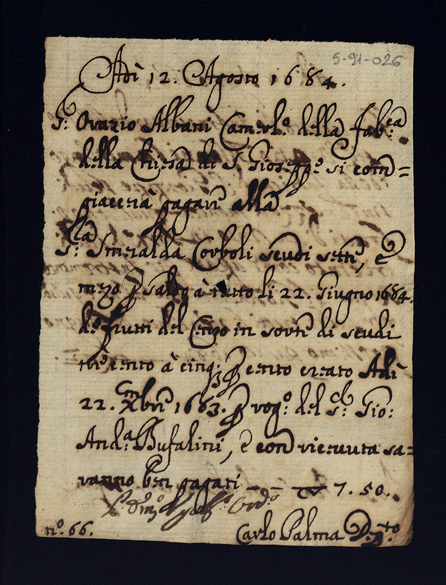 5-91-026
Adi 12. Agosto 1684.
Sr. Orazio Albani Camerl.º della Fab.ca
della Chiesa di S. Gioseppe si com=
piacerà pagare alla
Sra. Smeralda Corboli scudi sette, e
mezo p saldo à tutto li 22. Giugno 1684.
de frutti del Censo in sorte di scudi
trecento à cinq. p cento creato Adi
22. Xbre 1663. p rog.º del Sr. Gio:
And.a Bufalini, e con ricevuta sa=
ranno ben pagati — 7.50.
nº. 66.
Carlo Palma